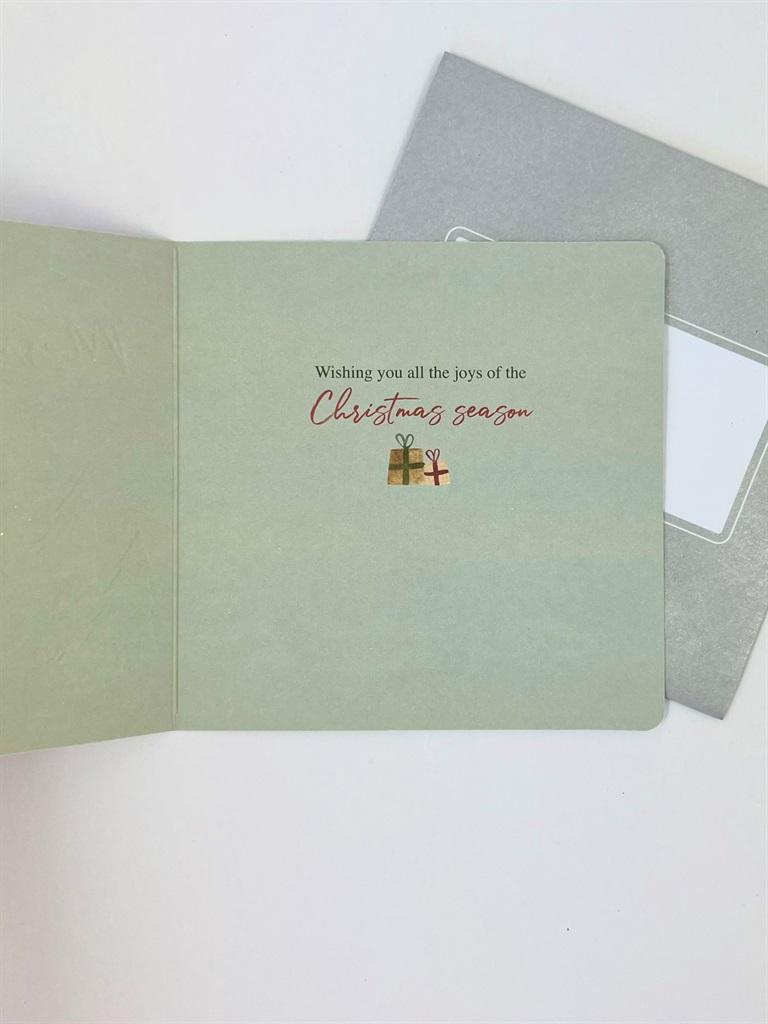 Wishing you all the joys of the
Christmas season